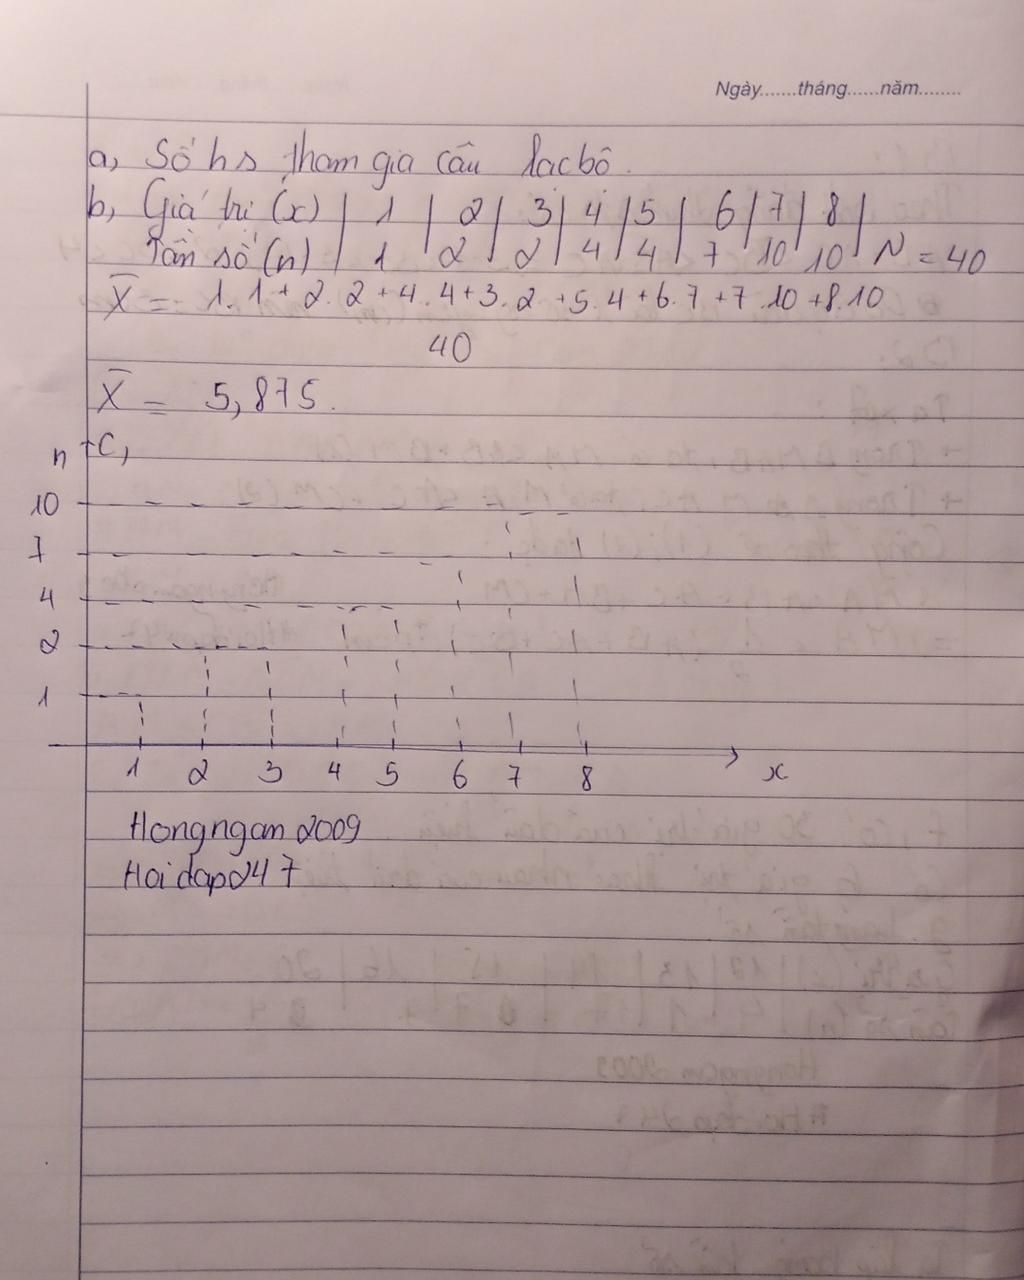 Ngày.......tháng......năm........
a, Số hs tham gia câu lạc bộ.
b, Giá trị (x) | 1 | 2 | 3 | 4 | 5 | 6 | 7 | 8 |
Tần số (n) | 1 | 2 | 2 | 4 | 4 | 7 | 10 | 10 | N = 40
X̄ = 1.1 + 2.2 + 4.4 + 3.2 + 5.4 + 6.7 + 7.10 + 8.10
40
X̄ = 5,875.
n C,
10
7
4
2
1
1 2 3 4 5 6 7 8 x
Hongngam 2009
Hoidap247